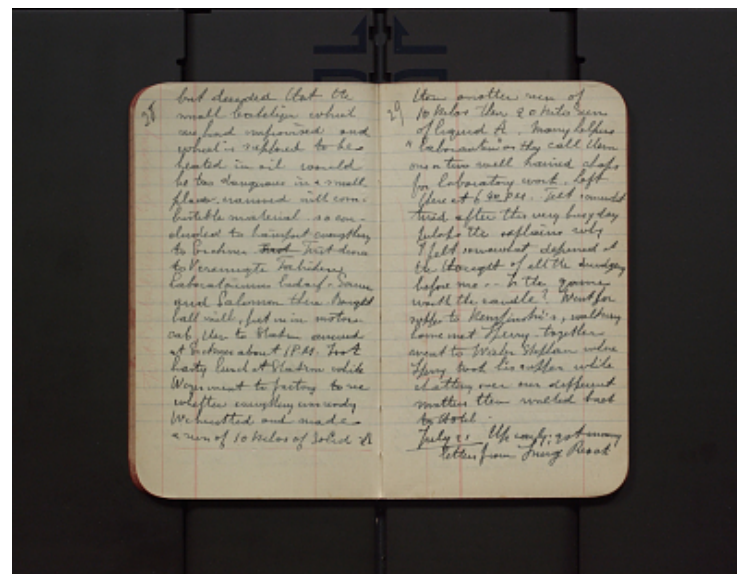 28
but decided that the
small bakelizer which
we had improvised and
which is supposed to be
heated in oil would
be too dangerous in a small
place crammed with com-
bustible material - so con-
cluded to transport everything
to Erkner. First drove
to Vereinigte Fabriken
Laboratoriums Bedarf. Saw
and Salomon there. Bought
ball mill, put in in motor
cab, then to Station arrived
at Erkner about 1 P.M. Took
hasty lunch at Station while
went to factory to see
whether everything was ready
We hustled and made
a run of 10 kilos of Solid A
29
then another run of
10 kilos then 20 kilos run
of liquid A. Many helpers
"Laboranten" as they call them
one or two well trained chaps
for laboratory work. Left
there at 6 30 P.M. Felt somewhat
tired after this very busy day
perhaps this explains why
I felt somewhat depressed at
the thought of all the drudgery
before me -- Is the game
worth the candle? Went for
supper to Kempinski's, walking
home met together
went to where
took his supper while
chatting over our different
matters then walked back
to Hotel.
July 21 Up early; got many
letters from